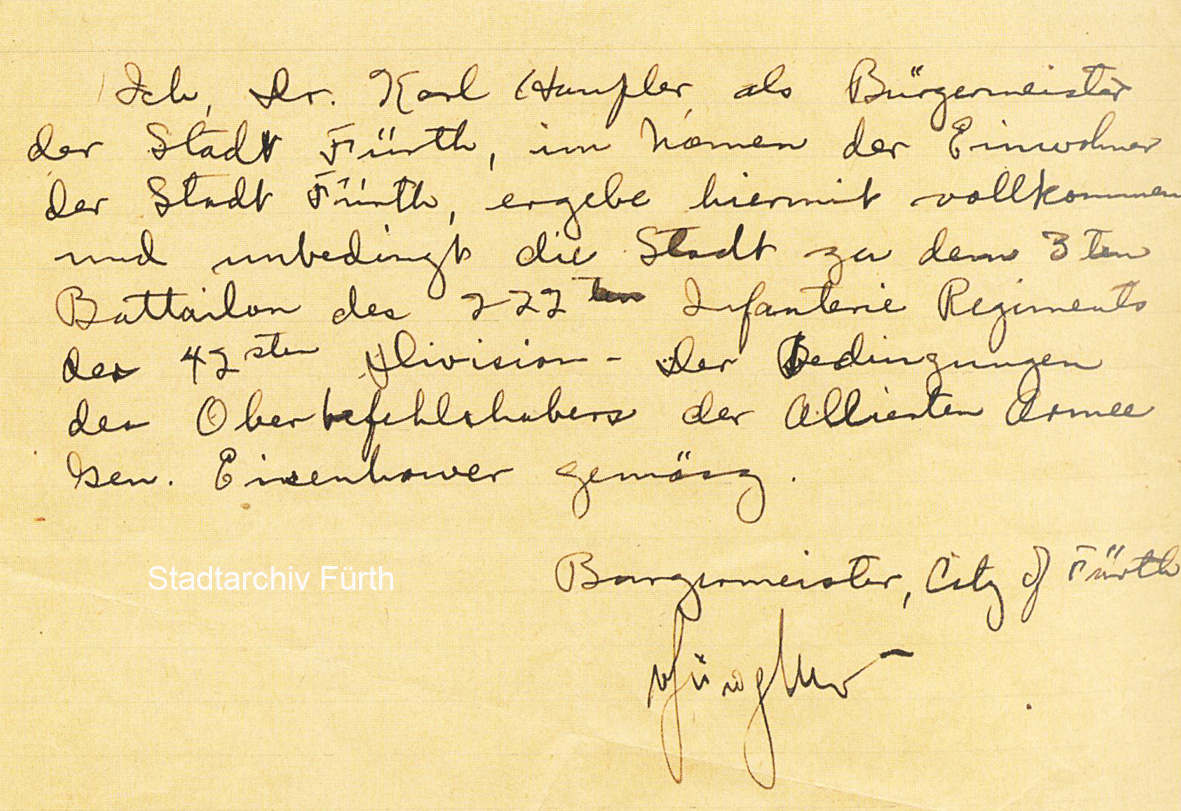 Ich, Dr. Karl Häupler, als Bürgermeister
der Stadt Fürth, im Namen der Einwohner
der Stadt Fürth, ergebe hiermit vollkommen
und unbedingt die Stadt zu dem 3ten
Battailon des 222ten Infanterie Regiments
der 42sten Division - Der Bedingungen
des Oberbefehlshabers der Allierten Armee
Gen. Eisenhower gemäsz.
Stadtarchiv Fürth
Burgermeister, City of Fürth